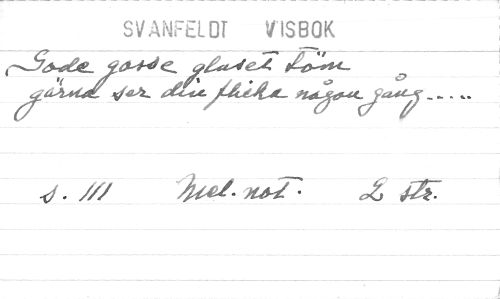 SVANFELDT VISBOK
Gode gosse glaset töm
gärna ser din flicka någon gång.....
s. 111 Mel. not. 2 str.